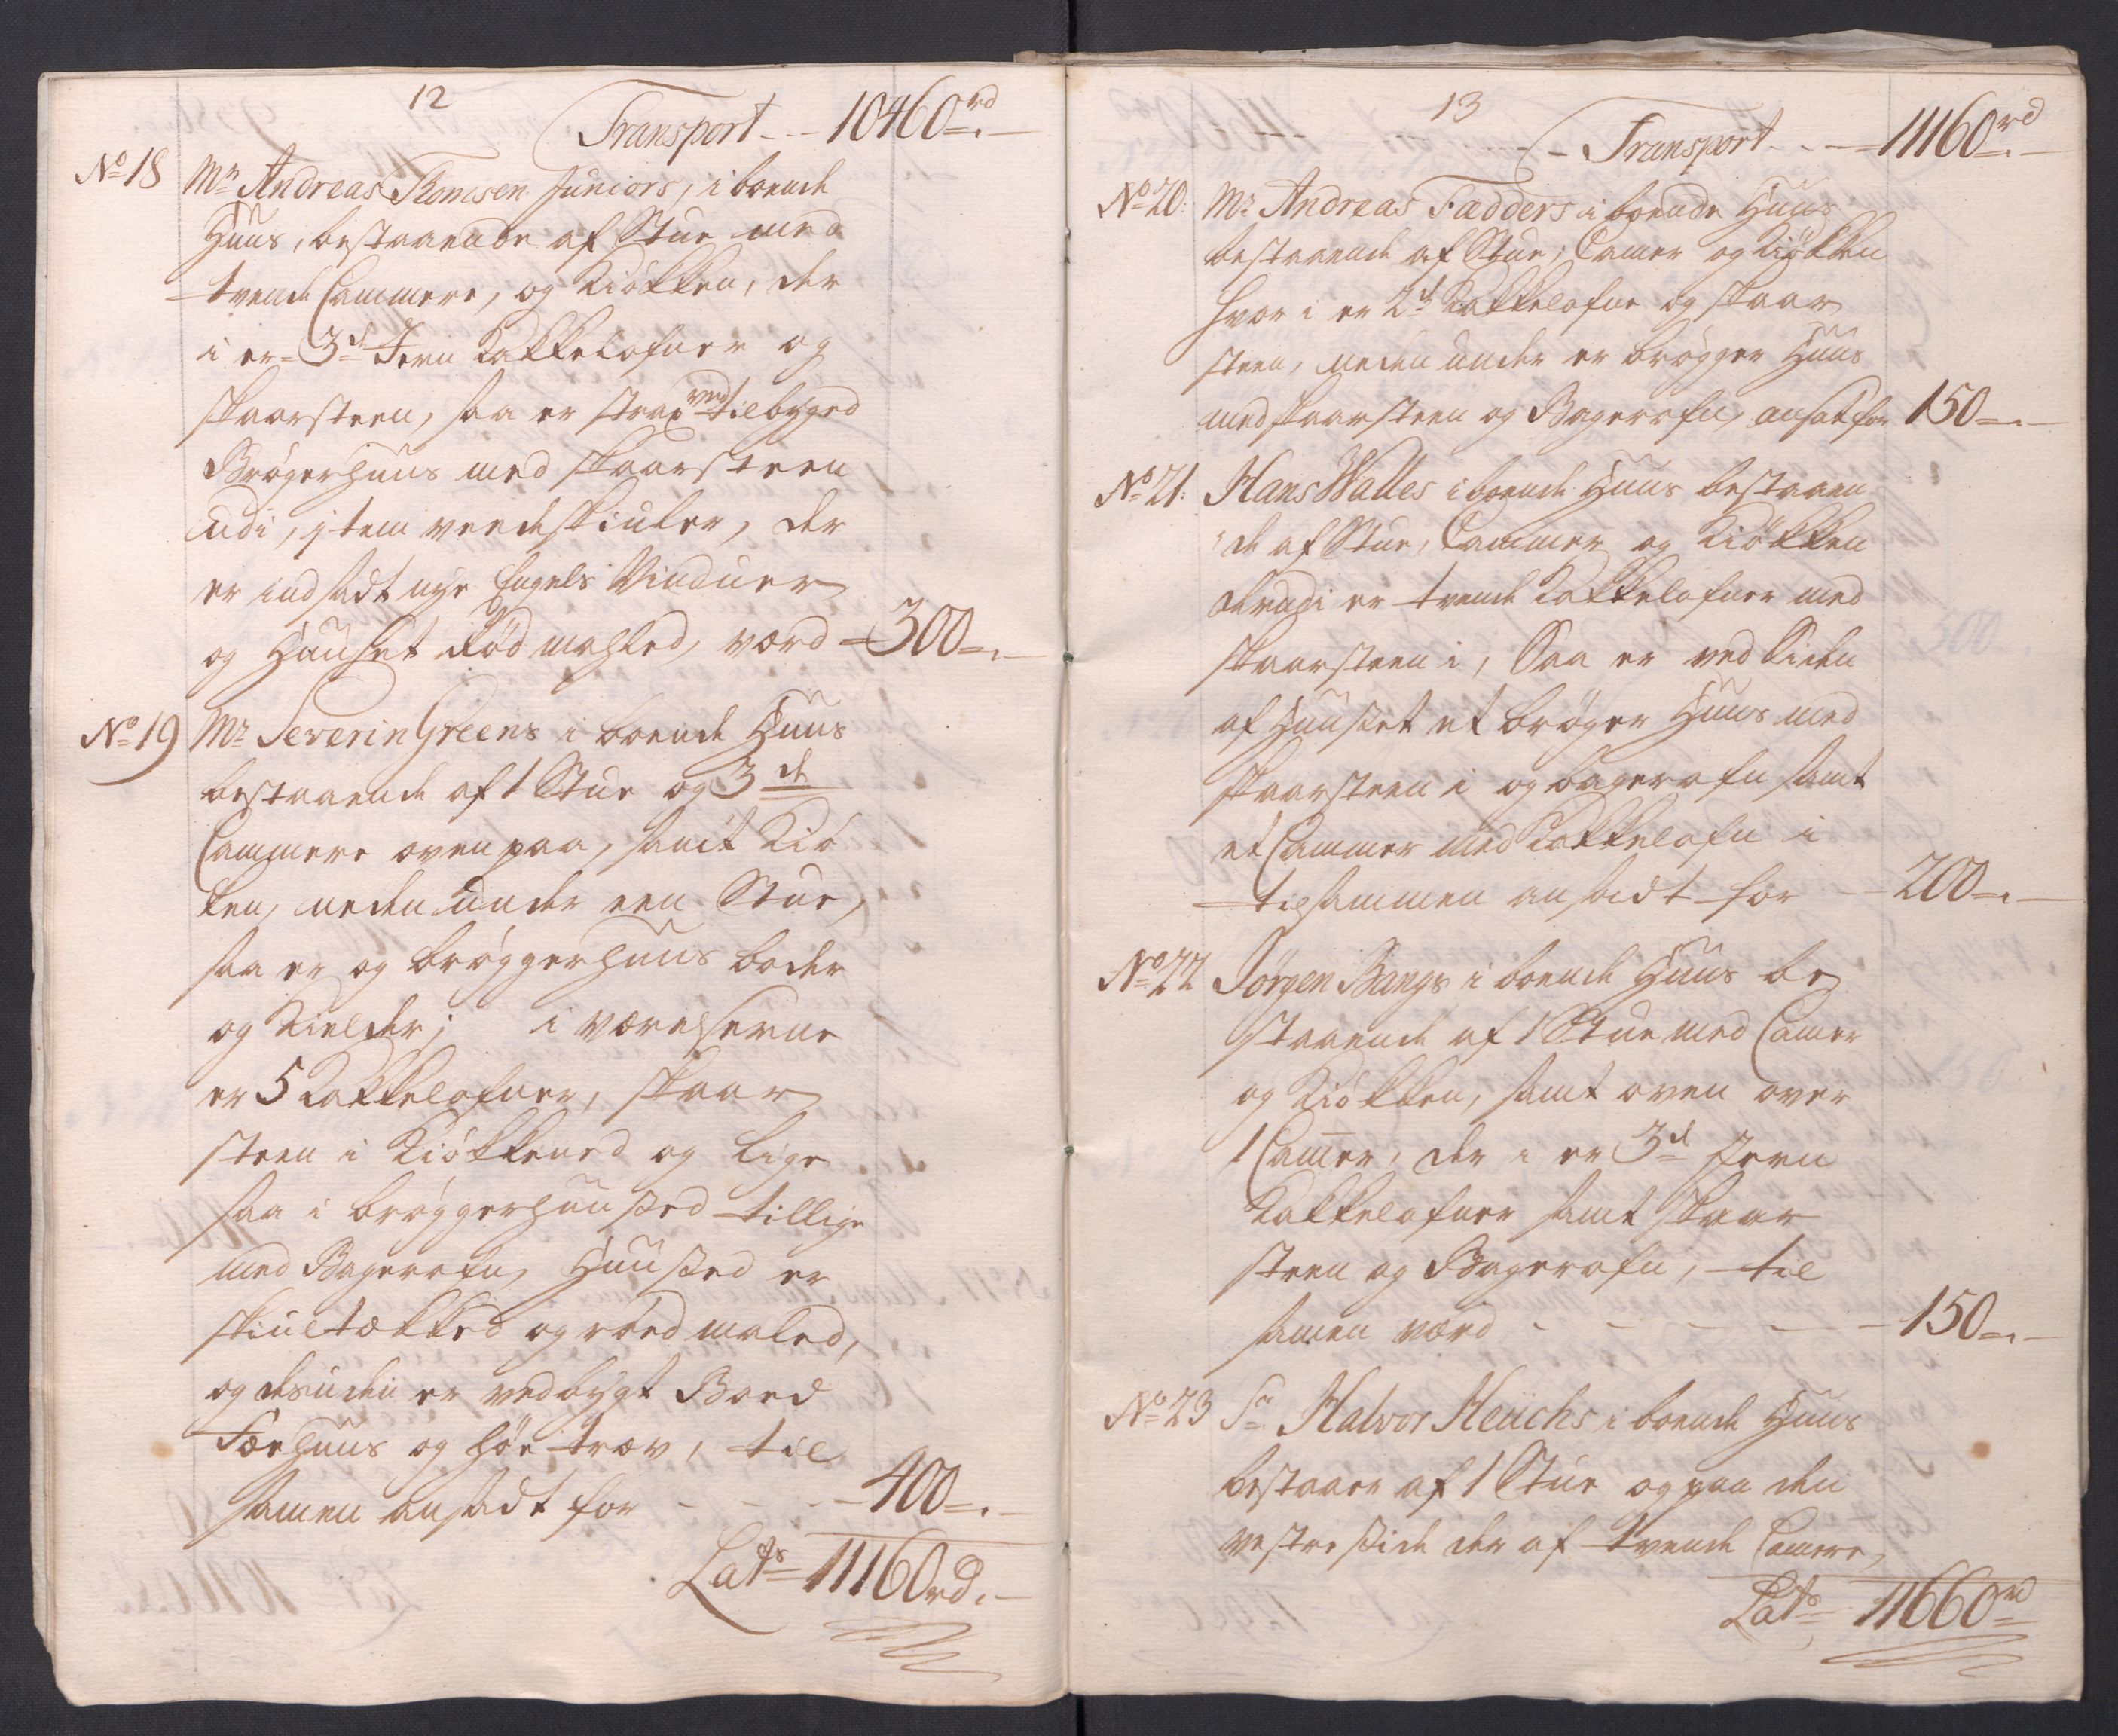 12
Transport - - - 10460 rd
No 18 Mr Andreas Thomsen Juniors, i boende
Huus, bestaaende af Stue med
tvende Cammere, og Kiøkken, der
i er 3de Jern Kakkelofner og
skaarsteen, saa er strax ved tilbyged
Brøgerhuus med skaarsteen
udi, jtem veedeskiuler, der
er indsadt nye Engels Vinduer
og Huuset Rød mahled, værd - 300 -
No 19 Mr Severin Greens i boende Huus
bestaaende af 1 Stue og 3de
Cammere oven paa, samt Kiø
ken, neden under een Stue,
saa er og brøggerhuus boder
og Kielder; i værelserne
er 5 Kakkelofner, skaar
steen i Kiøkkened og lige
saa i brøggerhuused tillige
med Bagerofn, Huused er
skiultækked og røed maled,
og desuden er vedbygt Boed
Færhuus og høe træv, til
samen ansadt for - - - 400 -
Lats 11160 rd. -
13
Transport - - - 11160 rd
No 20: Mr Andreas Fædders i boende Huus
bestaaende af Stue, Camer og Kiøkken
hvor i er 2de Kakkelofne og skaar
steen, neden under er brøgger Huus
med skaarsteen og Bagerofn, ansat for 150 -
No 21: Hans Walles i boende Huus bestaaen
de af Stue, Cammer og Kiøkken
derudi er tvende Kakkelofner med
skaarsteen i, Saa er ved Siden
af Huuset et brøger Huus med
skaarsteen i og bagerofn samt
et Cammer med Kakkelofn i
tilsammen ansadt for - - 200 -
No 22 Jørgen Bangs i boende Huus be
staaende af 1 Stue med Camer
og Kiøkken, samt oven over
1 Camer, der i er 3de Jern
Kakkelofner samt skaar
steen og Bagerofn, til
samen værd - - - - - 150 -
No 23 Sr Halvor Heuchs i boende Huus
bestaaer af 1 Stue og paa den
vestre side der af tvende Camere,
Lats 11660 rd